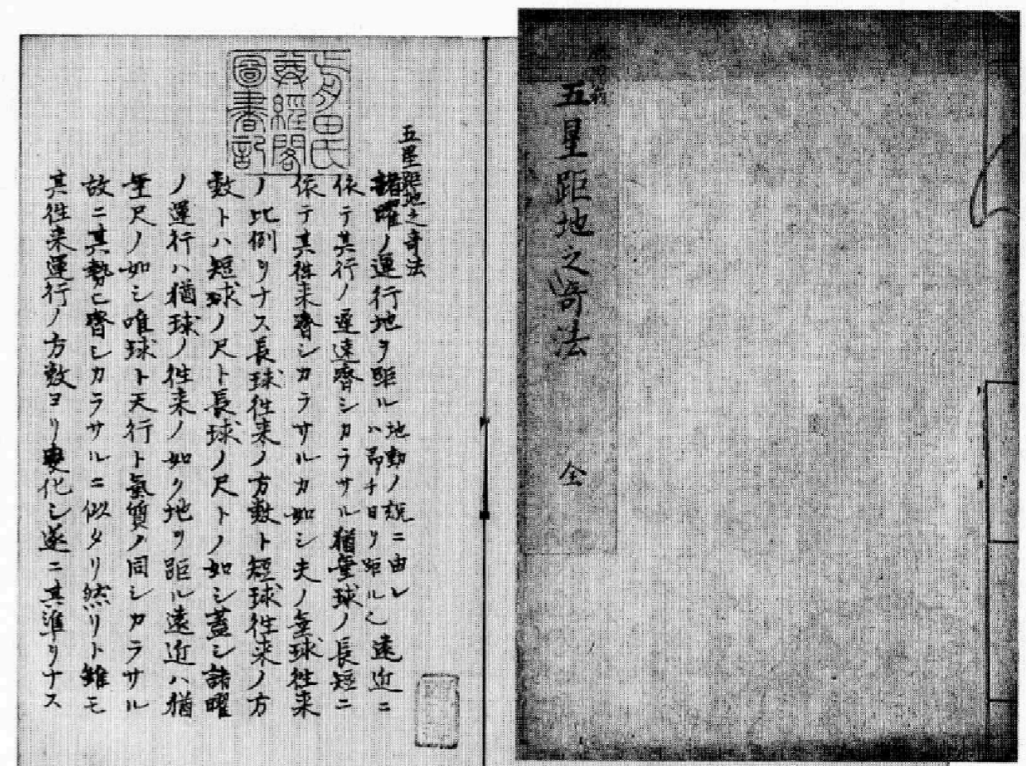 五星距地之奇法
全
五星距地之奇法
諸曜ノ運行地ヲ距ル地動ノ説ニ由レハ即チ日ヲ距ル也遠近ニ
依テ其行ノ遅速齊シカラサル猶垂球ノ長短ニ
依テ其徃来齊シカラサルカ如シ夫ノ垂球徃来
ノ比例ヲナス長球徃来ノ方数ト短球徃来ノ方
数トハ短球ノ尺ト長球ノ尺トノ如シ蓋シ諸曜
ノ運行ハ猶球ノ徃来ノ如ク地ヲ距ル遠近ハ猶
垂尺ノ如シ唯球ト天行ト氣質ノ同シカラサル
故ニ其勢ヒ齊シカラサルニ似タリ然リト雖モ
其徃来運行ノ方数ヨリ変化シ遂ニ其準ヲナス